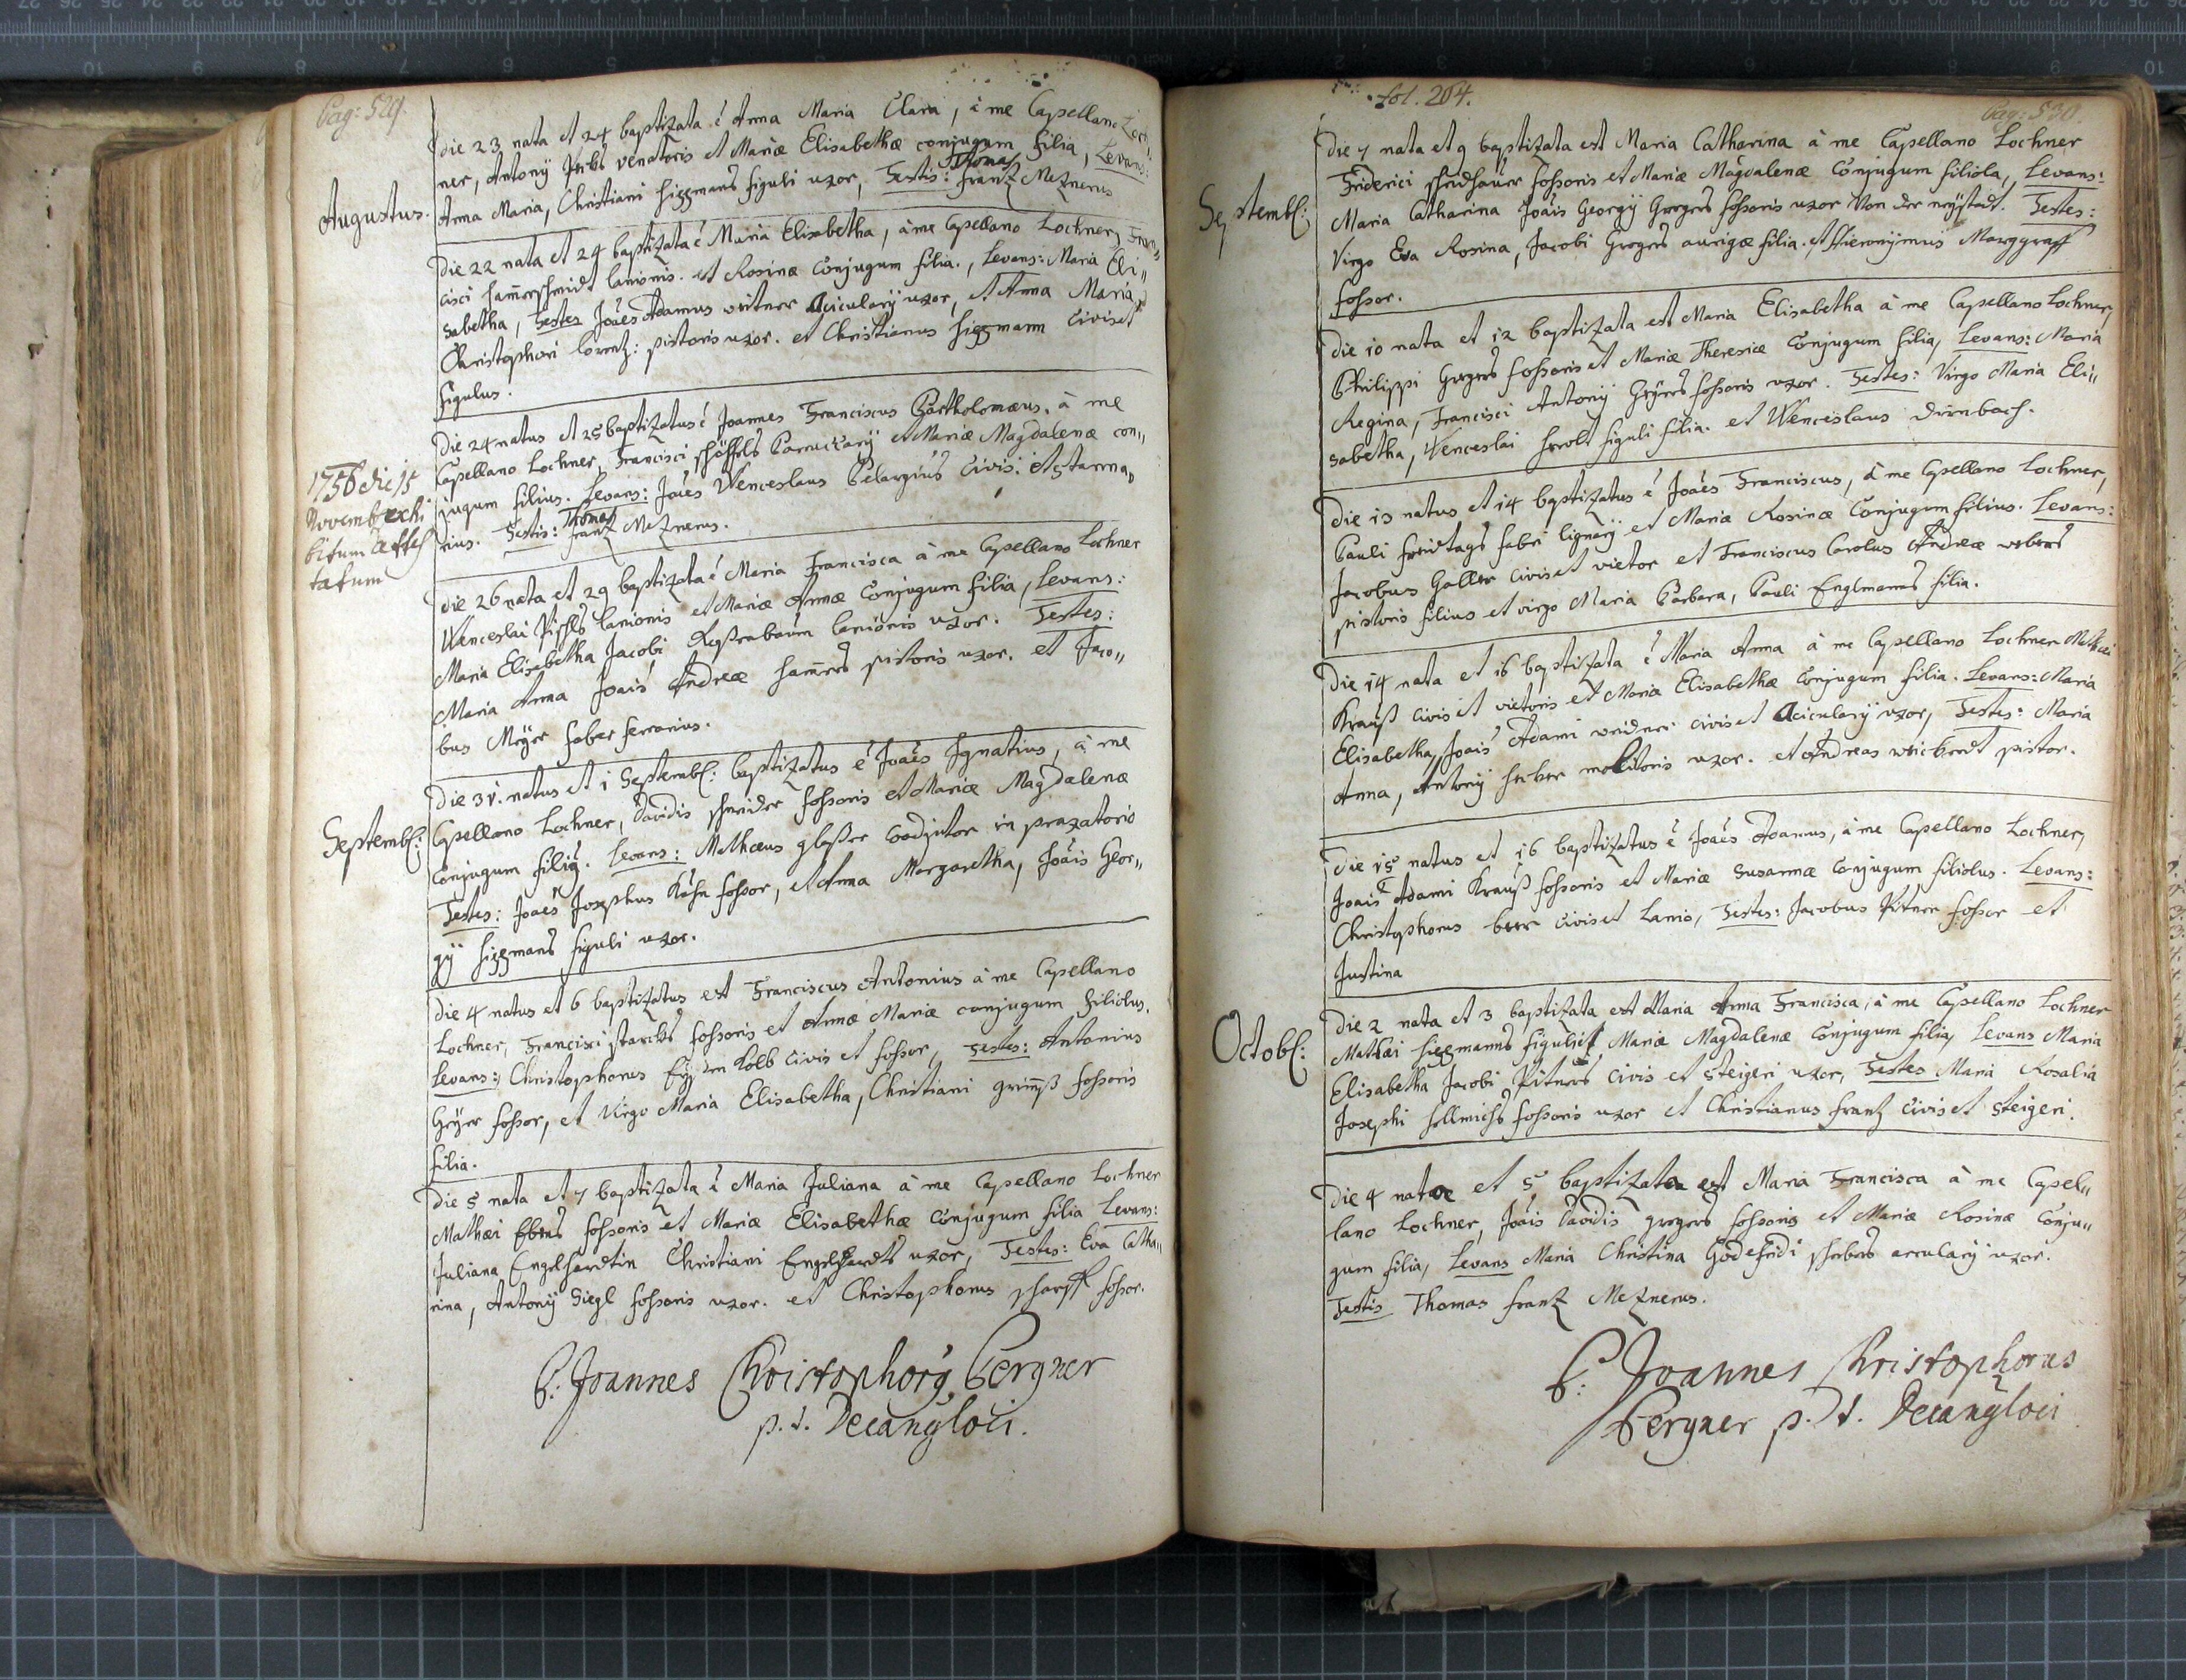 Pag: 529.
Augustus.
die 23 nata et 24 baptizata ê Anna Maria Clara, à me Capellano Loch:
ner, Antonÿ venatoris et Mariæ Elisabethæ conjugum filia, Levans:
Anna Maria, Christiani figuli uxor, Testis: Thomas frantz Meznerus
die 22 nata et 24 baptizata ê Maria Elisabetha, à me Capellano Lochner, Fran„
cisci hamerschmidt lanionis. et Rosinæ Conjugum filia., Levans: Maria Eli„
sabetha, Testes Joães Adamus acicularÿ uxor, et Anna Maria,
Christophori lorentz: pistoris uxor. et Christianus Civis et
figulus.
1756 die 15
Novemb exhi
bitum attes
tatum
die 24 natus et 25 baptizatus ê Joannes Franciscus Bartholomæus, à me
Capellano Lochner, Francisci et Mariæ Magdalenæ con„
jugum filius. Levans: Joães Wenceslaus Pelargius Civis et stanna„
rius. Testis: Thomas frantz Meznerus.
die 26 nata et 29 baptizata ê Maria Francisca à me Capellano Lochner
Wenceslai lanionis et Mariæ Annæ Conjugum filia, Levans:
Maria Elisabetha Jacobi lanionis uxor. Testes:
Maria Anna Joais Andreæ pistoris uxor. et Jaco„
bus Meÿer faber ferrarius.
Septembr:
die 31. natus et 1 Septembr: baptizatus ê Joães Ignatius, à me
Capellano Lochner, Davidis schneider fossoris et Mariæ Magdalenæ
Conjugum filiꝰ. Levans: Mathæus glasser Coadjutor in
Testes: Joaês Josephus fossor, et Anna Margaretha, Joais Geor„
gÿ figuli uxor.
die 4 natus et 6 baptizatus est Franciscus Antonius à me Capellano
Lochner, Francisci fossoris et Annæ Mariæ conjugum filiolus.
Levans: Christophorus Kolb Civis et fossor, Testes: Antonius
Geÿer fossor, et Virgo Maria Elisabetha, Christiani fossoris
filia.
die 5 nata et 7 baptizata ê Maria Juliana à me Capellano Lochner
Mathæi fossoris et Mariæ Elisabethæ Conjugum filia Levans:
Juliana Engelhardtin Christiani Engelhardts uxor, Testes: Eva Catha„
rina, Antonÿ Siegl fossoris uxor. et Christophorus scharff fossor.
P: Joannes Christophorꝰ Pergner
p. t. Decanꝰ loci.
fol. 204.
Pag: 530.
Septembr:
die 7 nata et 9 baptizata est Maria Catharina à me Capellano Lochner
Friderici fossoris et Mariæ Magdalenæ Conjugum filiola, Levans:
Maria Catharina Joais Georgÿ fossoris uxor Von der neÿstadt. Testes:
Virgo Eva Rosina, Jacobi aurigæ filia. et Hieronÿmus Marggraff
fossor.
die 10 nata et 12 baptizata est Maria Elisabetha à me Capellano Lochner,
Philippi fossoris et Mariæ Theresiæ Conjugum filia, Levans: Maria
Regina, Francisci Antonÿ Geÿers fossoris uxor. Testes: Virgo Maria Eli„
sabetha, Wenceslai figuli filia. et Wenceslaus
die 13 natus et 14 baptizatus ê Joães Franciscus, à me Capellano Lochner,
Pauli freidtags fabri lignarÿ et Mariæ Rosinæ Conjugum filius. Levans:
Jacobus Galler Civis et vietor et Franciscus Carolus Andreæ webers
pistoris filius et virgo Maria Barbara, Pauli Englmanns filia.
die 14 nata et 16 baptizata ê Maria Anna à me Capellano Lochner Mathæi
Krauß Civis et vietoris et Mariæ Elisabethæ Conjugum filia. Levans: Maria
Elisabetha, Joais Adami weidner civis et acicularÿ uxor, Testes: Maria
Anna, Antonÿ molitoris uxor. et Andreas pistor.
die 15 natus et 16 baptizatus ê Joaês Adamus, à me Capellano Lochner,
Joais Adami Krauß fossoris et Mariæ Susannæ Conjugum filiolus. Levans:
Christophorus beer Civis et Lanio, Testes: Jacobus Pitner fossor et
Justina
Octobr:
die 2 nata et 3 baptizata est Maria Anna Francisca, à me Capellano Lochner
Mathæi figuli et Mariæ Magdalenæ Conjugum filia, Levans Maria
Elisabetha Jacobi Pitners Civis et Steigeri uxor, Testes Maria Rosalia
Josephi fossoris uxor et Christianus frantz Civis et Steigeri.
die 4 nata et 5 baptizata est Maria Francisca à me Capel„
lano Lochner, Joais Davidis fossoris et Mariæ Rosinæ Conju„
gum filia, Levans Maria Christina Godefridi arcularÿ uxor.
Testis Thomas frantz Meznerus.
P: Joannes Christophorus
Pergner p. t. Decanꝰ loci